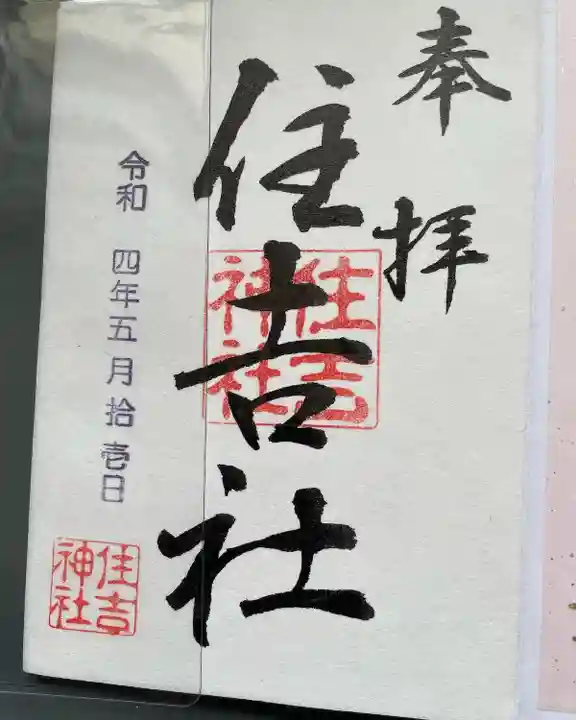 奉拝
住吉社
住吉
神社
令和 四年五月拾壱日
住吉
神社